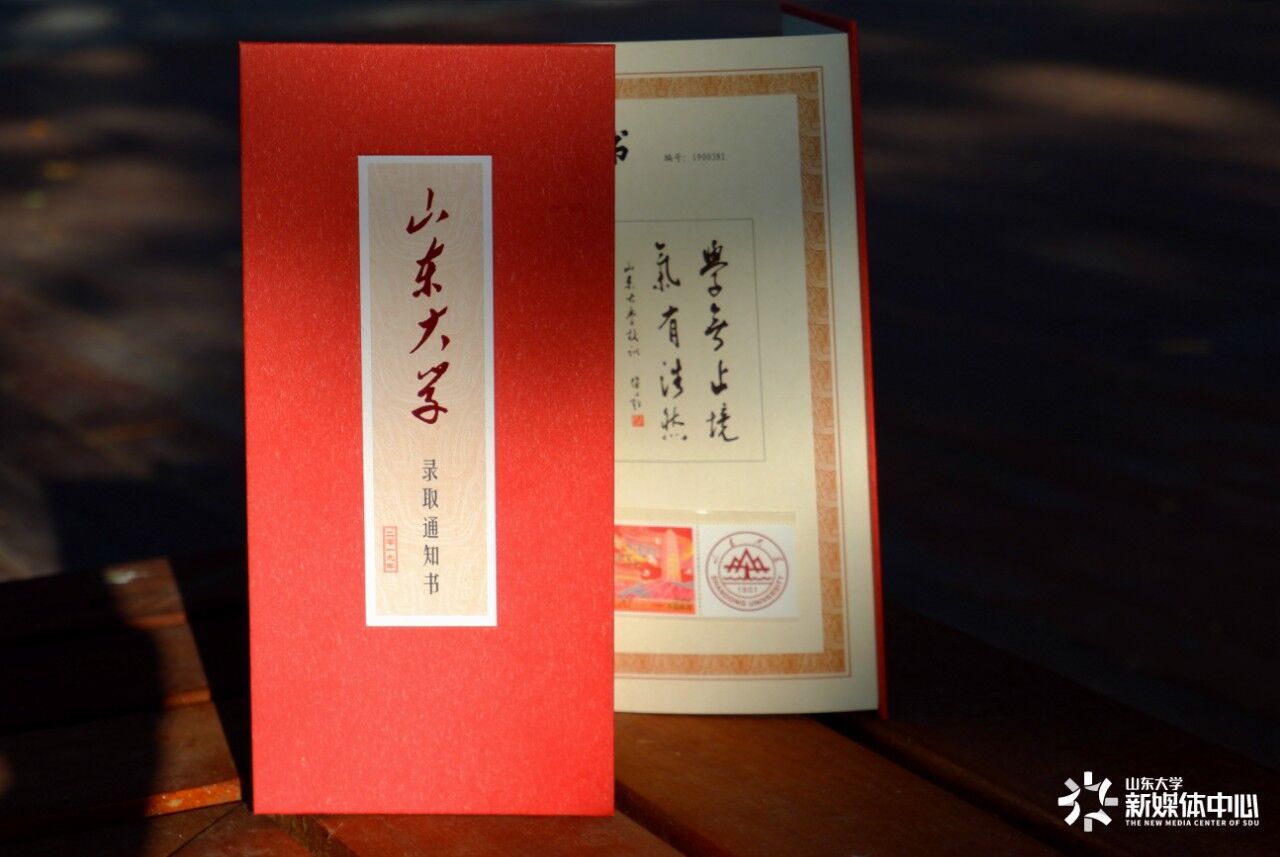 山东大学
录取通知书
二零一九年
书
编号：1900381
學無止境
氣有浩然
山东大学校训
山东大学
SHANDONG UNIVERSITY
1901
山东大学
新媒体中心
THE NEW MEDIA CENTER OF SDU